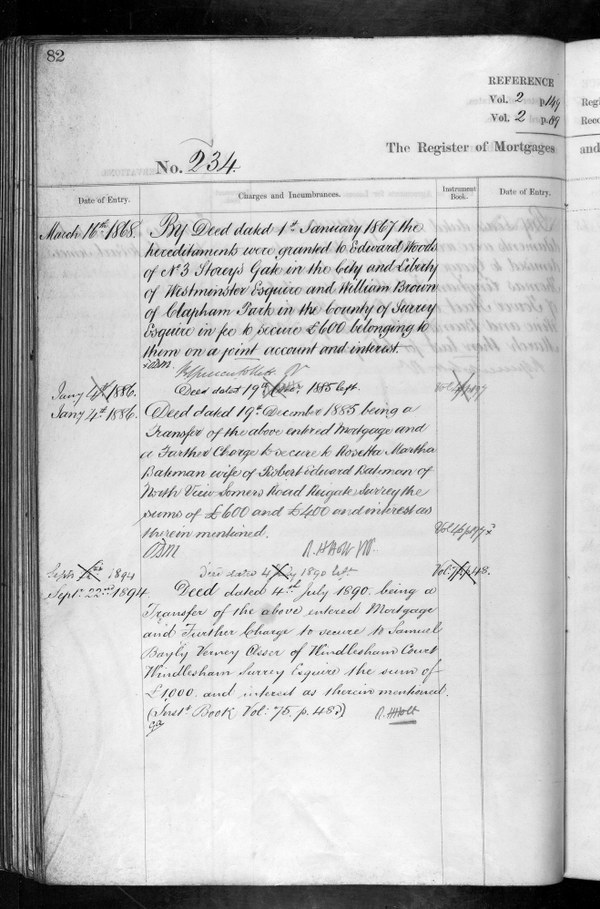 82
REFERENCE
Vol. 2 p. 149
Vol. 2 p. 89
Regi
Reco
The Register of Mortgages
and
No. 234.
Date of Entry.
Charges and Incumbrances.
Instrument Book.
Date of Entry.
March 16th 1868.
By Deed dated 1st January 1867 the
hereditaments were granted to Edward Woods
of No 3 Storeys Gate in the City and Liberty
of Westminster Esquire and William Brown
of Clapham Park in the County of Surrey
Esquire in fee to secure £600 belonging to
them on a joint account and interest.
Jany 4th 1886.
Deed dated 19th Decr 1885 left.
Jany 4th 1886.
Deed dated 19th December 1885 being a
Transfer of the above entered Mortgage and
a Further Charge to secure to Rosetta Martha
Bateman wife of Robert Edward Bateman of
North View Somers Road Reigate Surrey the
sums of £600 and £400 and interest as
therein mentioned.
R. H. Holt
Septr 1894
Deed dated 4 July 1890 left
Vol. 48.
Septr 22nd 1894
Deed dated 4th July 1890 being a
Transfer of the above entered Mortgage
and Further Charge to secure to Samuel
Bayly Verney of Windlesham Court
Windlesham Surrey Esquire the sum of
£1,000 and interest as therein mentioned.
(Inst Book Vol: 75. p. 483)
R. H. Holt